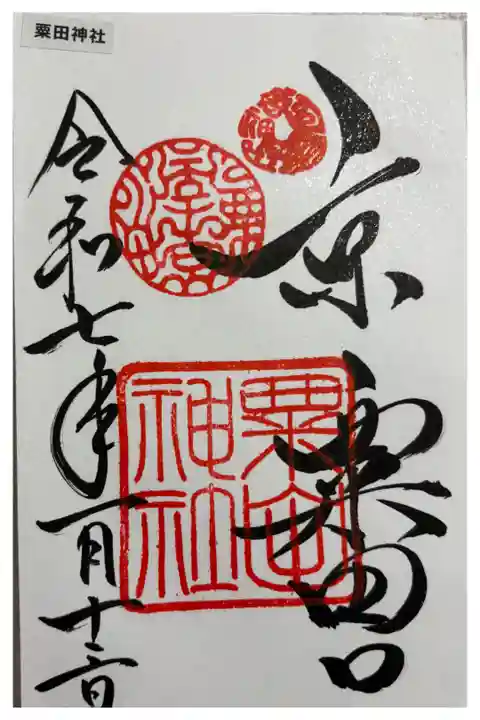 粟田神社
京
粟田口
粟田
神社
令和七年一月十二日